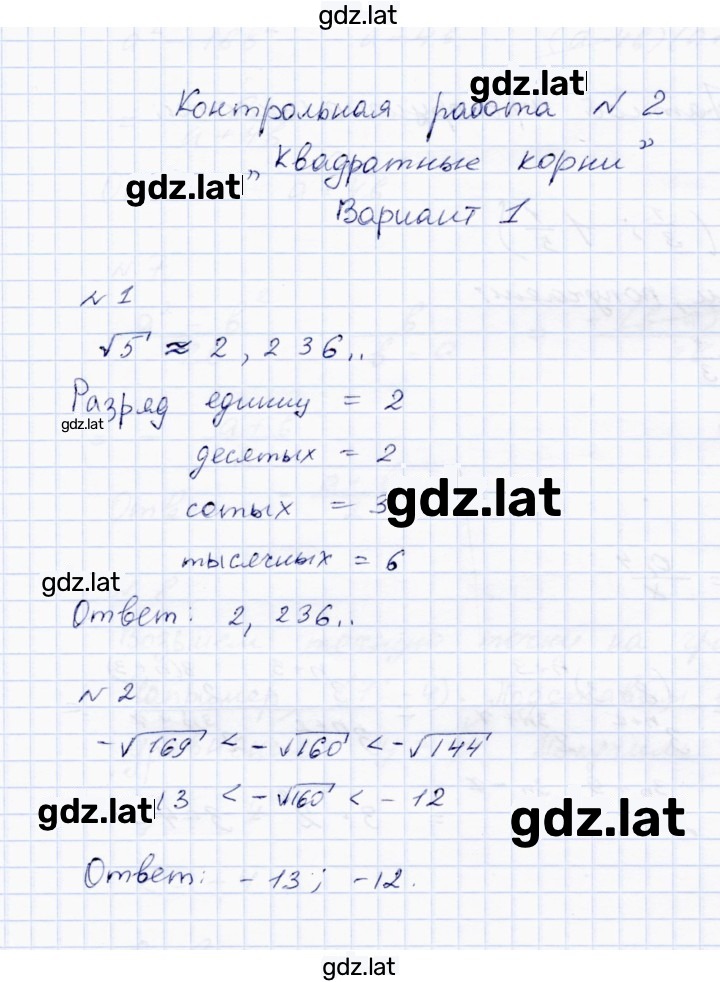 gdz.lat
gdz.lat
Контрольная работа N 2
gdz.lat
„Квадратные корни”
Вариант 1
N 1
√5 ≈ 2,236..
Разряд единиц = 2
gdz.lat
десятых = 2
сотых = 3
gdz.lat
тысячных = 6
gdz.lat
Ответ: 2,236..
N 2
-√169 < -√160 < -√144
13 < -√160 < -12
gdz.lat
gdz.lat
Ответ: -13; -12.
gdz.lat